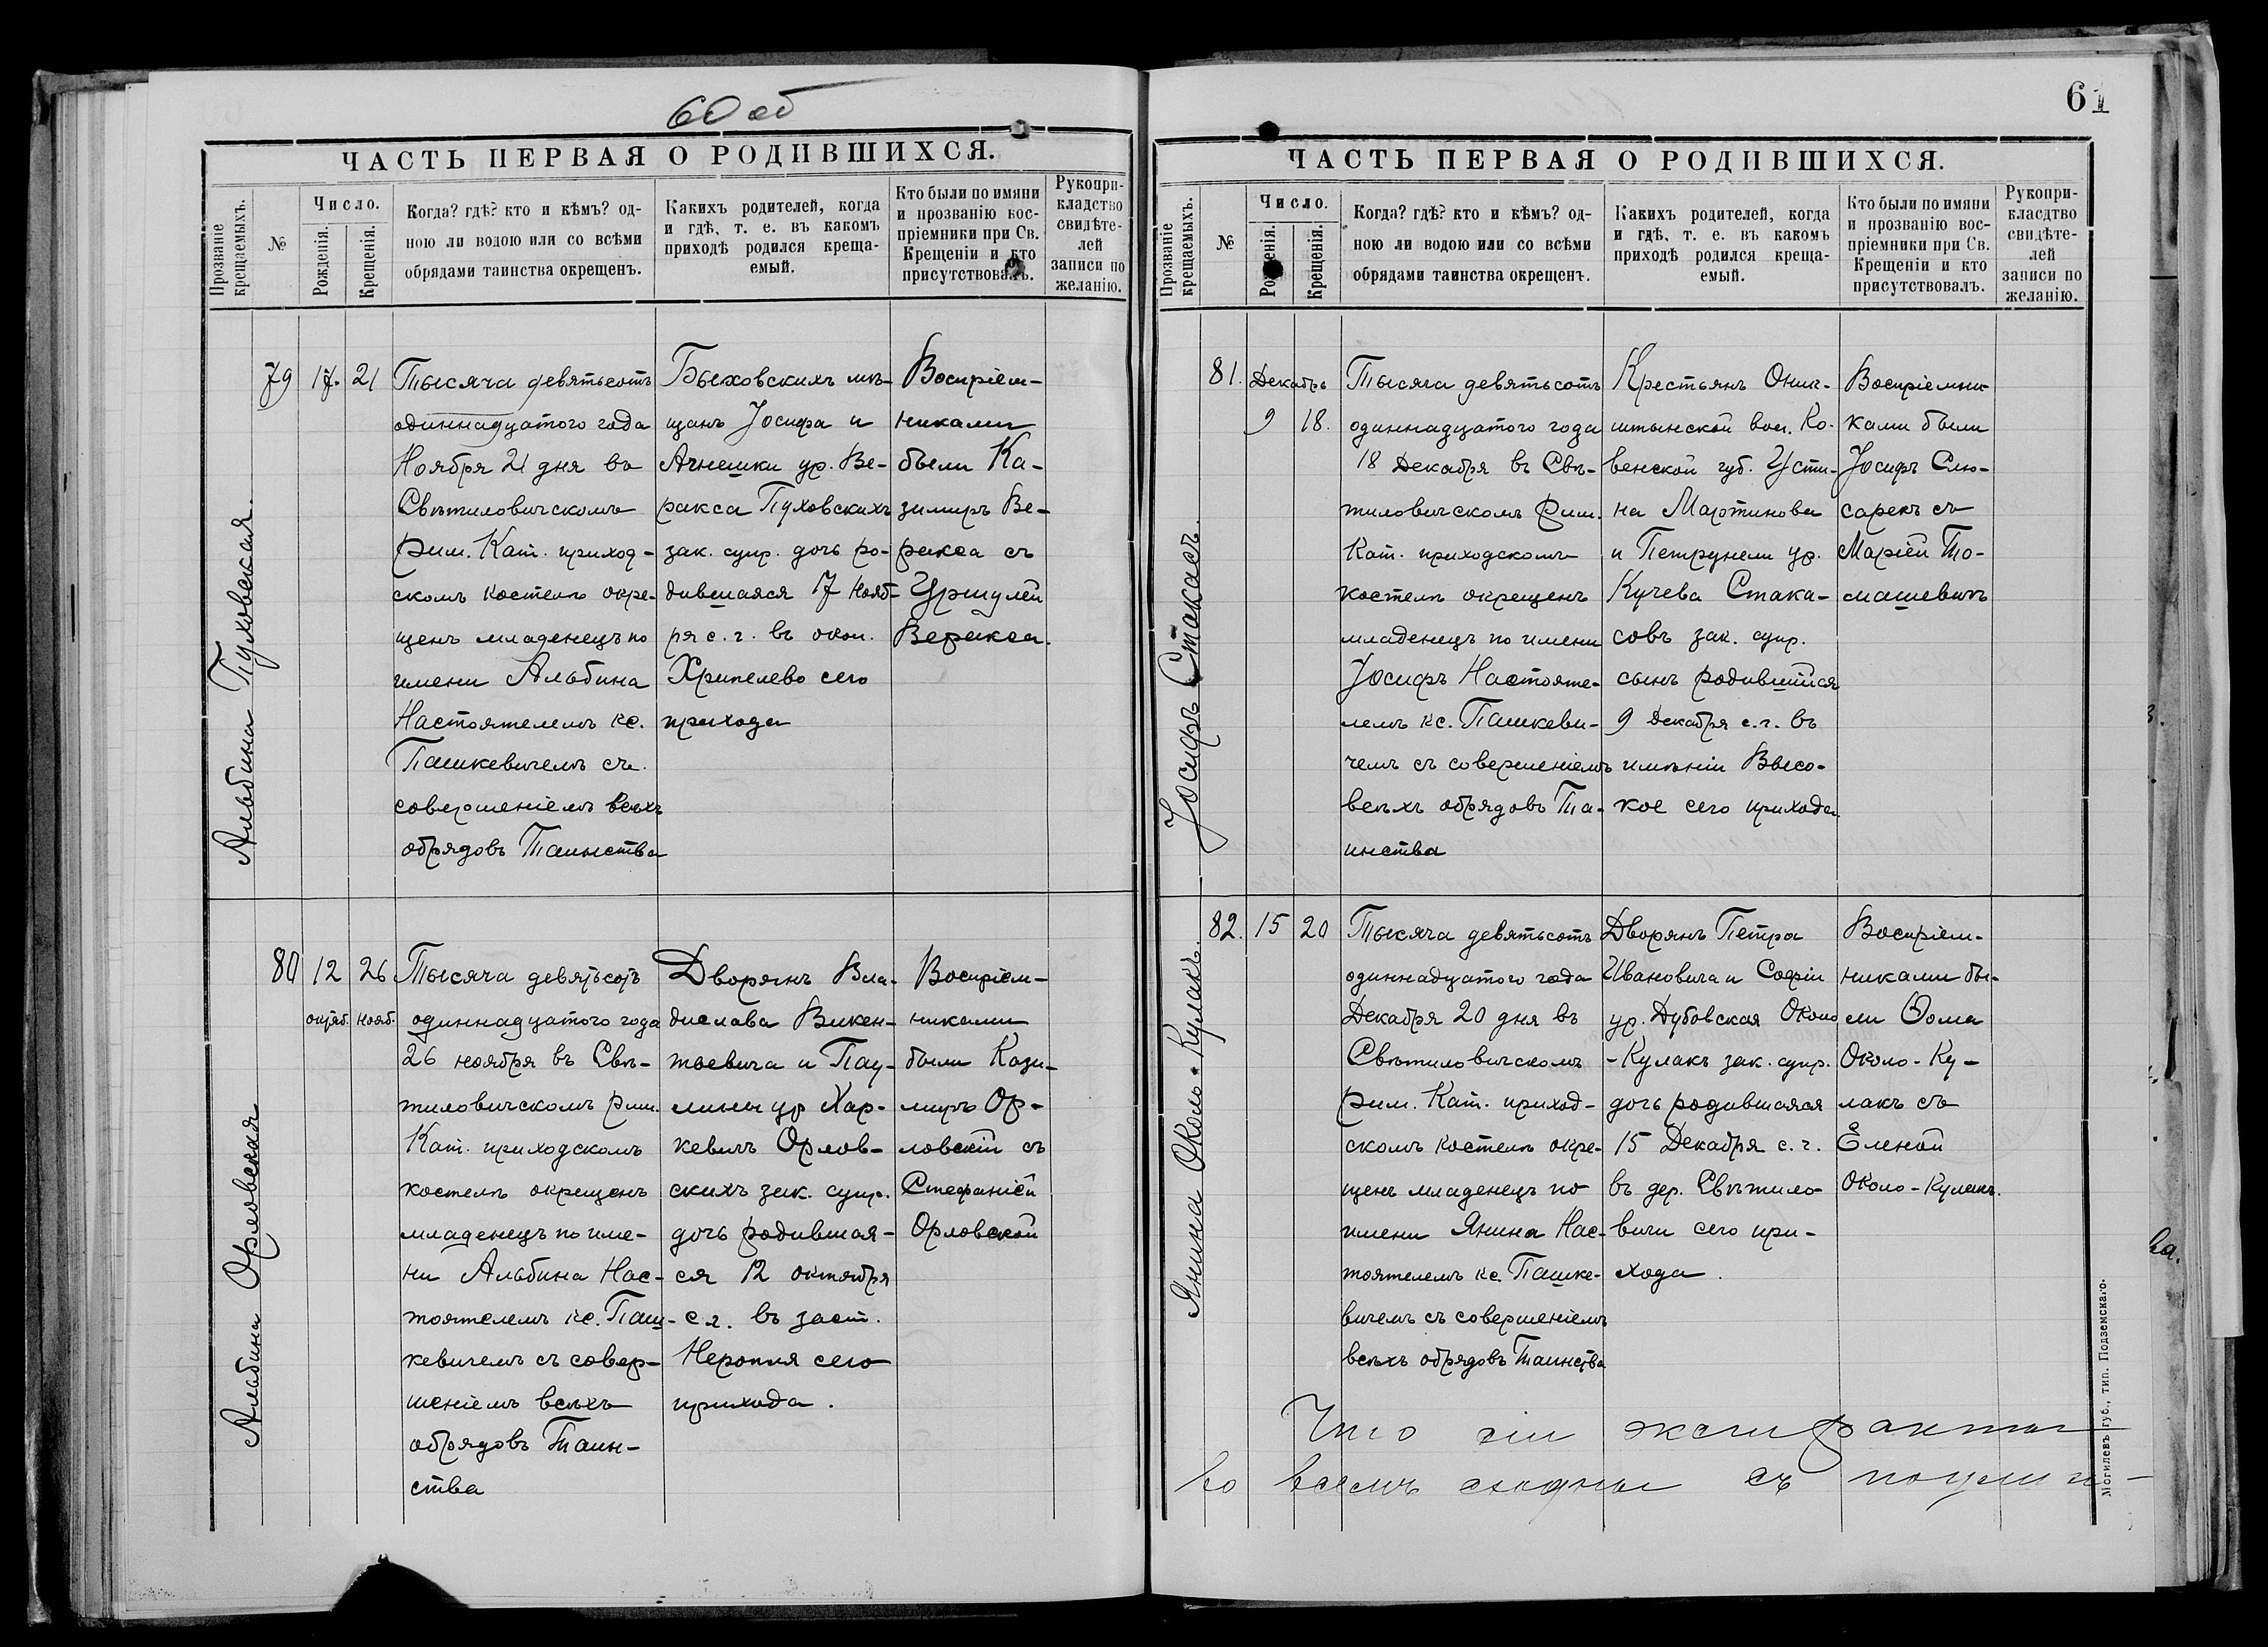 60 об
ЧАСТЬ ПЕРВАЯ О РОДИВШИХСЯ.
Прозваніе крещаемыхъ.
№
Число.
Рожденія.
Крещенія.
Когда? гдѣ? кто и кѣмъ? од-
ною ли водою или со всѣми
обрядами таинства окрещенъ.
Какихъ родителей, когда
и гдѣ, т. е. въ какомъ
приходѣ родился креща-
емый.
Кто были по имяни
и прозванію вос-
пріемники при Св.
Крещеніи и кто
присутствовалъ.
Рукопри-
кладство
свидѣте-
лей
записи по
желанію.
Альбина Пуховская.
79 17. 21
Тысяча девятьсотъ
одиннадцатого года
Ноября 21 дня въ
Свѣтиловичскомъ
Рим. Кат. приход-
скомъ костелѣ окре-
щенъ младенецъ по
имени Альбина
Настоятелемъ кс.
Пашкевичемъ съ
совершеніемъ всѣхъ
обрядовъ Таинства
Быховскихъ мѣ-
щанъ Іосифа и
Агнешки ур. Ве-
ракса Пуховскихъ
зак. супр. дочь ро-
дившаяся 17 Нояб-
ря с. г. въ окол.
Хрипелево сего
прихода
Воспріем-
никами
были Ка-
зимиръ Ве-
ракса съ
Уршулей
Веракса.
Альбина Орловская
80 12 26
октяб. нояб.
Тысяча девятьсотъ
одиннадцатого года
26 ноября въ Свѣ-
тиловичскомъ рим.
Кат. приходскомъ
костелѣ окрещенъ
младенецъ по име-
ни Альбина Нас-
тоятелемъ кс. Паш-
кевичемъ съ совер-
шеніемъ всѣхъ
обрядовъ Таин-
ства
Дворянъ Вла-
дислава Викен-
тьевича и Пау-
лины ур Хар-
кевичъ Орлов-
скихъ зак. супр.
дочь родившая-
ся 12 октября
с. г. въ заст.
Неропля сего
прихода.
Воспріем-
никами
были Кази-
миръ Ор-
ловскій съ
Стефаніей
Орловской
61
ЧАСТЬ ПЕРВАЯ О РОДИВШИХСЯ.
Прозваніе крещаемыхъ.
№
Число.
Рожденія.
Крещенія.
Когда? гдѣ? кто и кѣмъ? од-
ною ли водою или со всѣми
обрядами таинства окрещенъ.
Какихъ родителей, когда
и гдѣ, т. е. въ какомъ
приходѣ родился креща-
емый.
Кто были по имяни
и прозванію вос-
пріемники при Св.
Крещеніи и кто
присутствовалъ.
Рукопри-
класдтво
свидѣте-
лей
записи по
желанію.
Іосифъ Стакасъ.
81. Декабрь
9 18.
Тысяча девятьсотъ
одиннадцатого года
18 Декабря въ Свѣ-
тиловичскомъ Рим.
Кат. приходскомъ
костелѣ окрещенъ
младенецъ по имени
Іосифъ Настояте-
лемъ кс. Пашкеви-
чемъ съ совершеніемъ
всѣхъ обрядовъ Та-
инства
Крестьянъ Оник-
штынской вол. Ко-
венской губ. Усти-
на Мартинова
и Петрунели ур.
Кучева Стака-
совъ зак. супр.
сынъ родившійся
9 Декабря с. г. въ
имѣніи Высо-
кое сего прихода
Воспріемни-
ками были
Іосифъ Слю-
сарекъ съ
Маріей То-
машевичъ
Янина Около-Кулакъ.
82. 15 20
Тысяча девятьсотъ
одиннадцатого года
Декабря 20 дня въ
Свѣтиловичскомъ
Рим. Кат. приход-
скомъ костелѣ окре-
щенъ младенецъ по
имени Янина Нас-
тоятелемъ кс. Пашке-
вичемъ съ совершеніемъ
всѣхъ обрядовъ Таинства
Дворянъ Петра
Ивановича и Софіи
ур. Дубовская Около
-Кулакъ зак. супр.
дочь родившаяся
15 Декабря с. г.
въ дер. Свѣтило-
вичи сего при-
хода.
Воспріем-
никами бы-
ли Ѳома
Около-Ку-
лакъ съ
Еленой
Около-Кулакъ.
Что сіи экстракты
во всемъ сходны съ подлин-
Могилевъ губ., тип. Подземскаго.